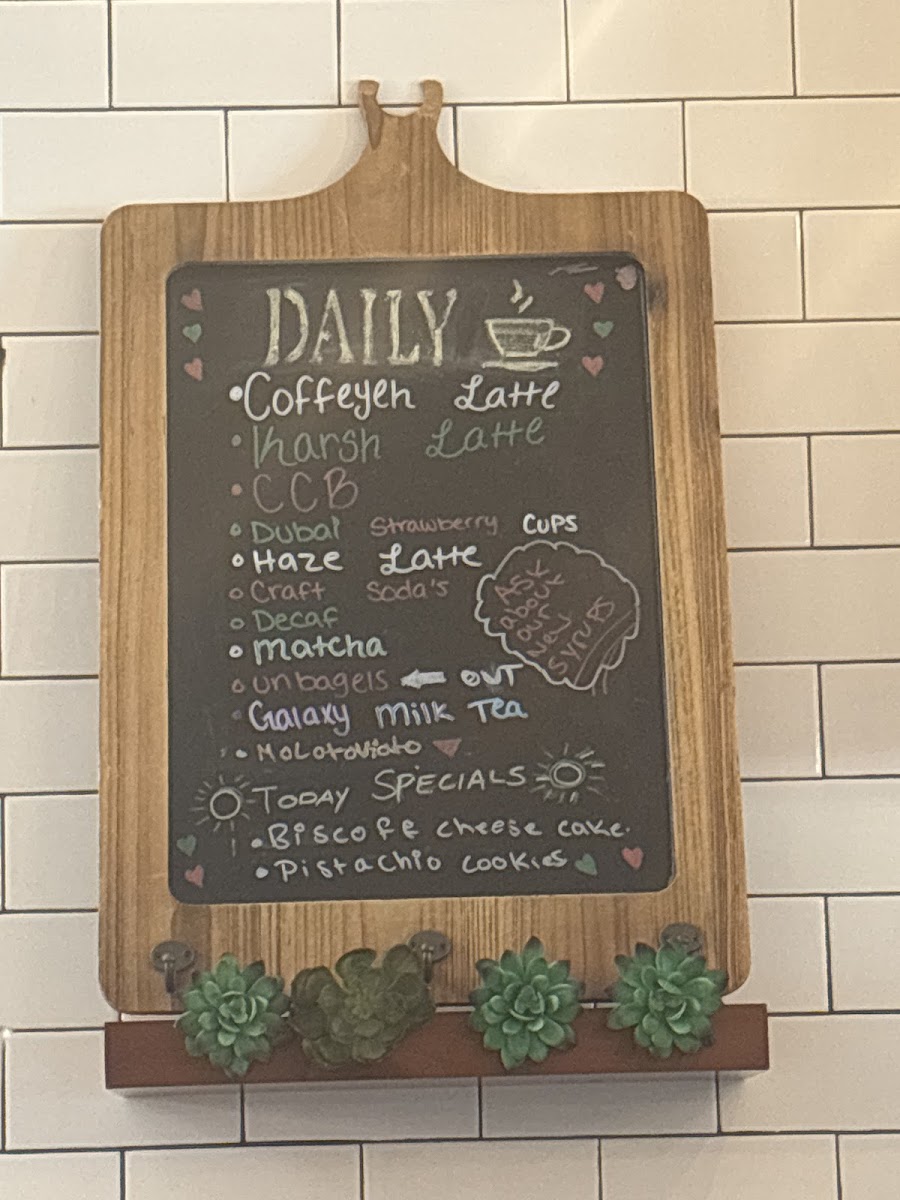 DAILY
• Coffeyeh Latte
• Kharsh Latte
• CCB
• Dubai Strawberry CUPS
• Haze Latte
• Craft Soda's
• Decaf
• Matcha
• unbagels ← OUT
• Galaxy Milk Tea
• MoLotoviato
ASK
about
our
new
syrups
TODAY SPECIALS
• Biscoff cheese cake.
• Pistachio cookies